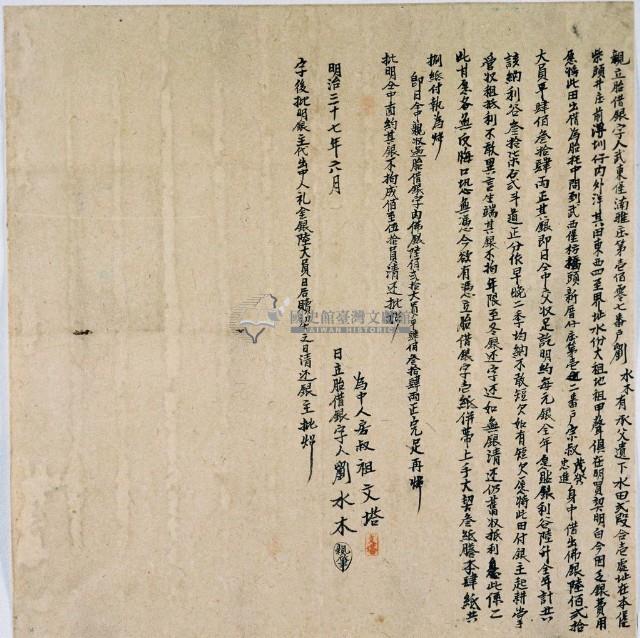 親立胎借銀字人武東堡湳雅庄第壹佰零七番戶劉水木有承父遺下水田弍段合壹處址在本堡
柴頭井庄前潭圳仔內外洋其田東西四至界址水份大租地租甲聲俱在明買契明白今因乏銀費用
愿將此田出借為胎托中問到武西堡 橋頭新厝仔庄第壹 二番戶宗叔 忠進身中借出佛銀陸佰弍拾
大員平肆佰叁拾肆両正其銀即日仝中交收足訖明約每元銀全年愿貼銀利谷陸升全年計共
該納利谷叁拾柒石弍斗道正分作早晚二季均納不敢短欠如有短欠愿將此田付銀主起耕掌
管收租抵利不敢異言生端其銀不拘年限至冬銀还字还如無銀清还仍舊收抵利 此係二
此甘愿各無反悔口恐無憑今欲有憑立胎借銀字壹紙併帶上手大契叁紙謄本肆紙共
捌紙付執為炤
即日仝中親收過胎借銀字內佛銀陸佰弍拾大員平肆佰叁拾肆両正完足再炤
批明仝中面約其銀不拘成佰至伍拾員清还批炤
明治三十七年六月
為中人房叔祖文塔
日立胎借銀字人劉水木
親筆
字後批明銀主代出中人礼金銀陸大員日后贖 之日清还銀主批炤
國史館臺灣文獻館
TAIWAN HISTORICA